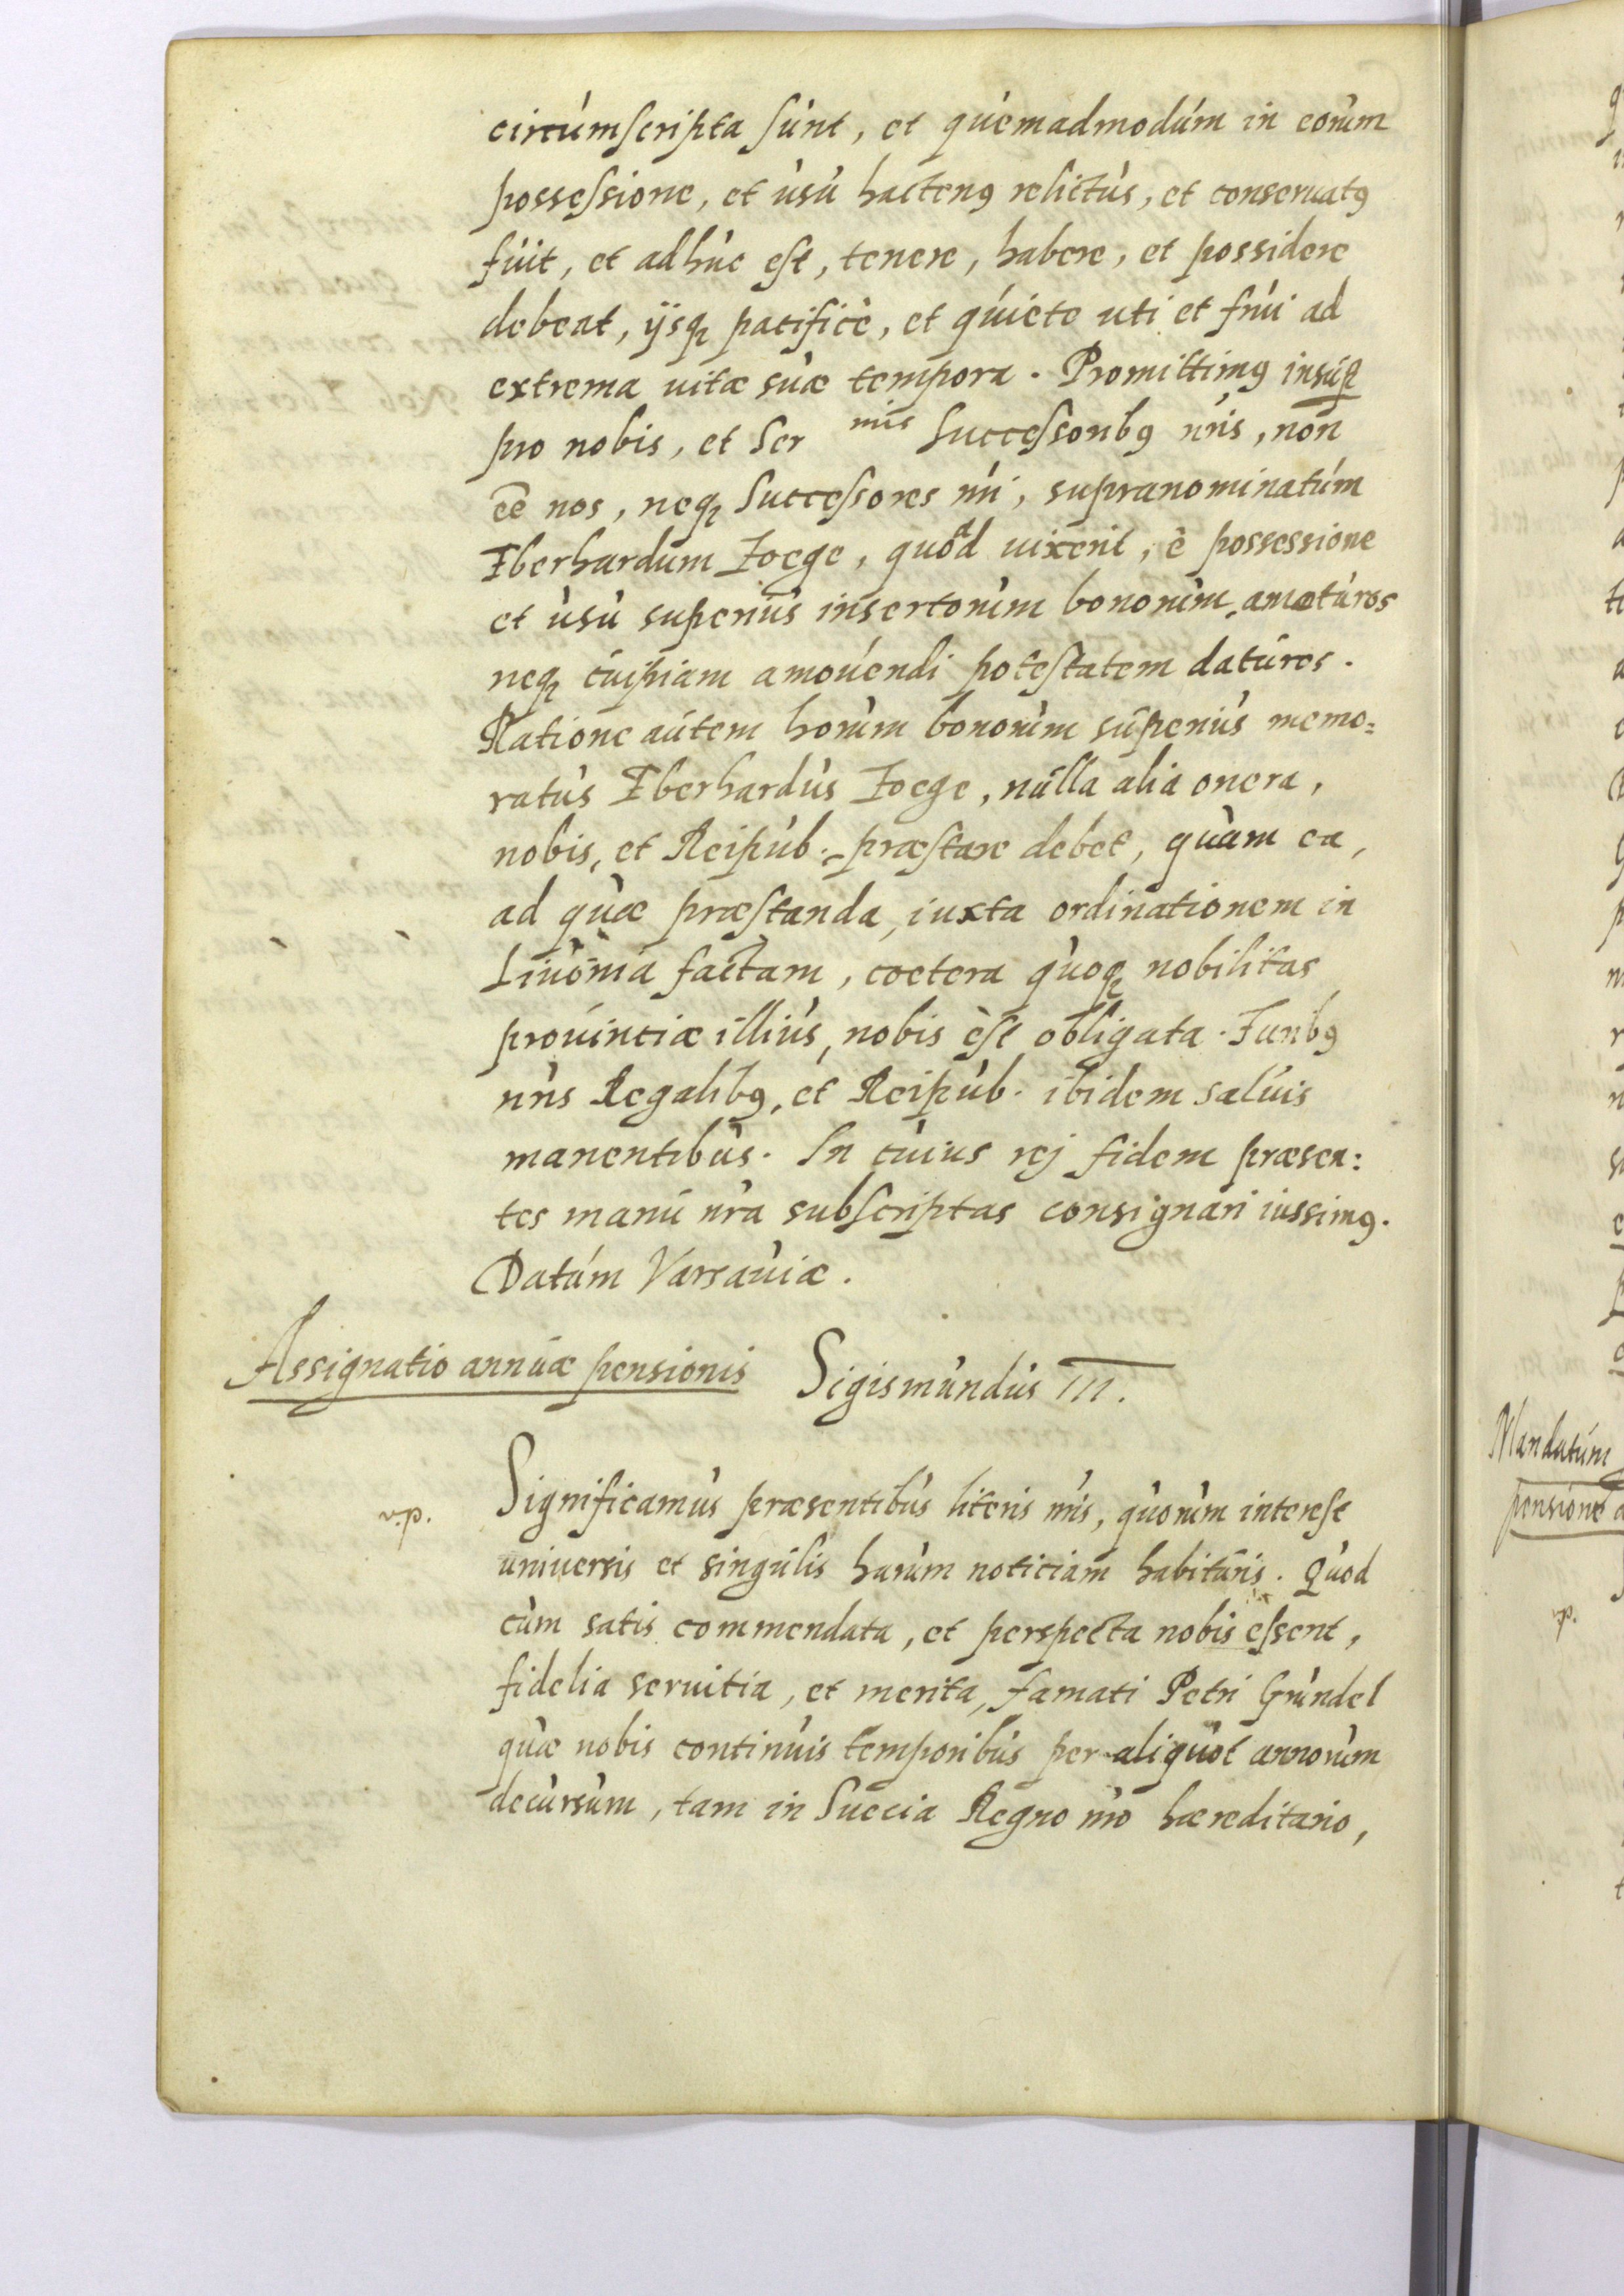 circùmscripta sùnt, et quèmadmodùm in eorùm
possessione, et ùsù hactenꝰ relictùs, et conseruatꝰ
fùit, et adhùc est, tenere, habere, et possidere
debeat, ijsqꝫ pacificè, et qùiete uti et frùi ad
extrema uitæ sùæ tempora. Promittimꝰ insùꝑ
pro nobis, et Ser mis Successoribꝰ nris, non
ee̅ nos, neqꝫ Successores nri, supranominatùm
Eberhardum Zoege, quoad uixerit, è possessione
et ùsù superiùs insertorùm bonorùm amotùros
neqꝫ cùipiam amoùendi potestatem datùros.
Ratione aùtem horùm bonorùm sùperiùs memo=
ratùs Eberhardùs Zoege, nùlla alia onera,
nobis, et Reipùb. præstare debet, qùam ea,
ad qùæ præstanda, iuxta ordinationem in
Liùonia factam, coetera qùoqꝫ nobilitas
proùinciæ illiùs, nobis est obligata. Iuribꝰ
nris Regalibꝰ, et Reipùb. ibidem salùis
manentibùs. In cùius rej fidem præsen:
tes manù nra subscriptas consignari iussimꝰ.
Datùm Varsaùiæ.
Assignatio annùæ pensionis Sigismùndùs III.
Significamùs præsentibùs literis nris, qùorùm interest
v.p.
uniuersis et singùlis harùm noticiam habitùris. Qùod
cùm satis commendata, et perspecta nobis essent,
fidelia seruitia, et merita, famati Petri Grùndel
qùæ nobis continùis temporibùs per aliqùot annorùm
decùrsùm, tam in Suecia Regno nro hæreditario,
Mandatùm
pensione